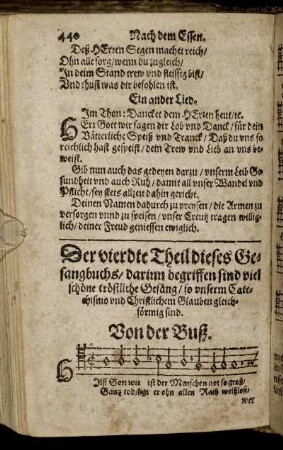 440 Nach dem Essen.
Deß HErren Segen machet reich/
Ohn alle sorg/wenn du zugleich/
In deim Stand trew und fleissig bist/
Vnd thust was dir befohlen ist.
Ein ander Lied.
Im Thon: Dancket dem HErren heut/rc.
HErr Gott wir sagen dir Lob vnd Danck/ für dein
Vätterliche Speiß vnd Tranck/ Daß du vns so
reichlich hast gespeist/ dein Trew vnd Lieb an vns be-
weist.
Gib nun auch das gedeyen darzu/ vnserm Leib Ge-
sundheit vnd auch Ruh/ damit all vnser Wandel vnd
Pflicht/ sey stets allzeit dahin gericht.
Deinen Namen dadurch zu preysen/ die Armen zu
versorgen vnnd zu speisen/ vnser Creutz tragen willig-
lich/ deiner Freud geniessen ewiglich.
Der vierdte Theil dieses Ge-
sangbuchs/ darinn begriffen sind viel
schöne tröstliche Gesäng/ so vnserm Cate-
chismo vnd Christlichem Glauben gleich-
förmig sind.
Von der Buß.
HIlff Gott wie ist der Menschen not so groß/
Gantz tod/ligt er ohn allen Rath weißloß/
wer